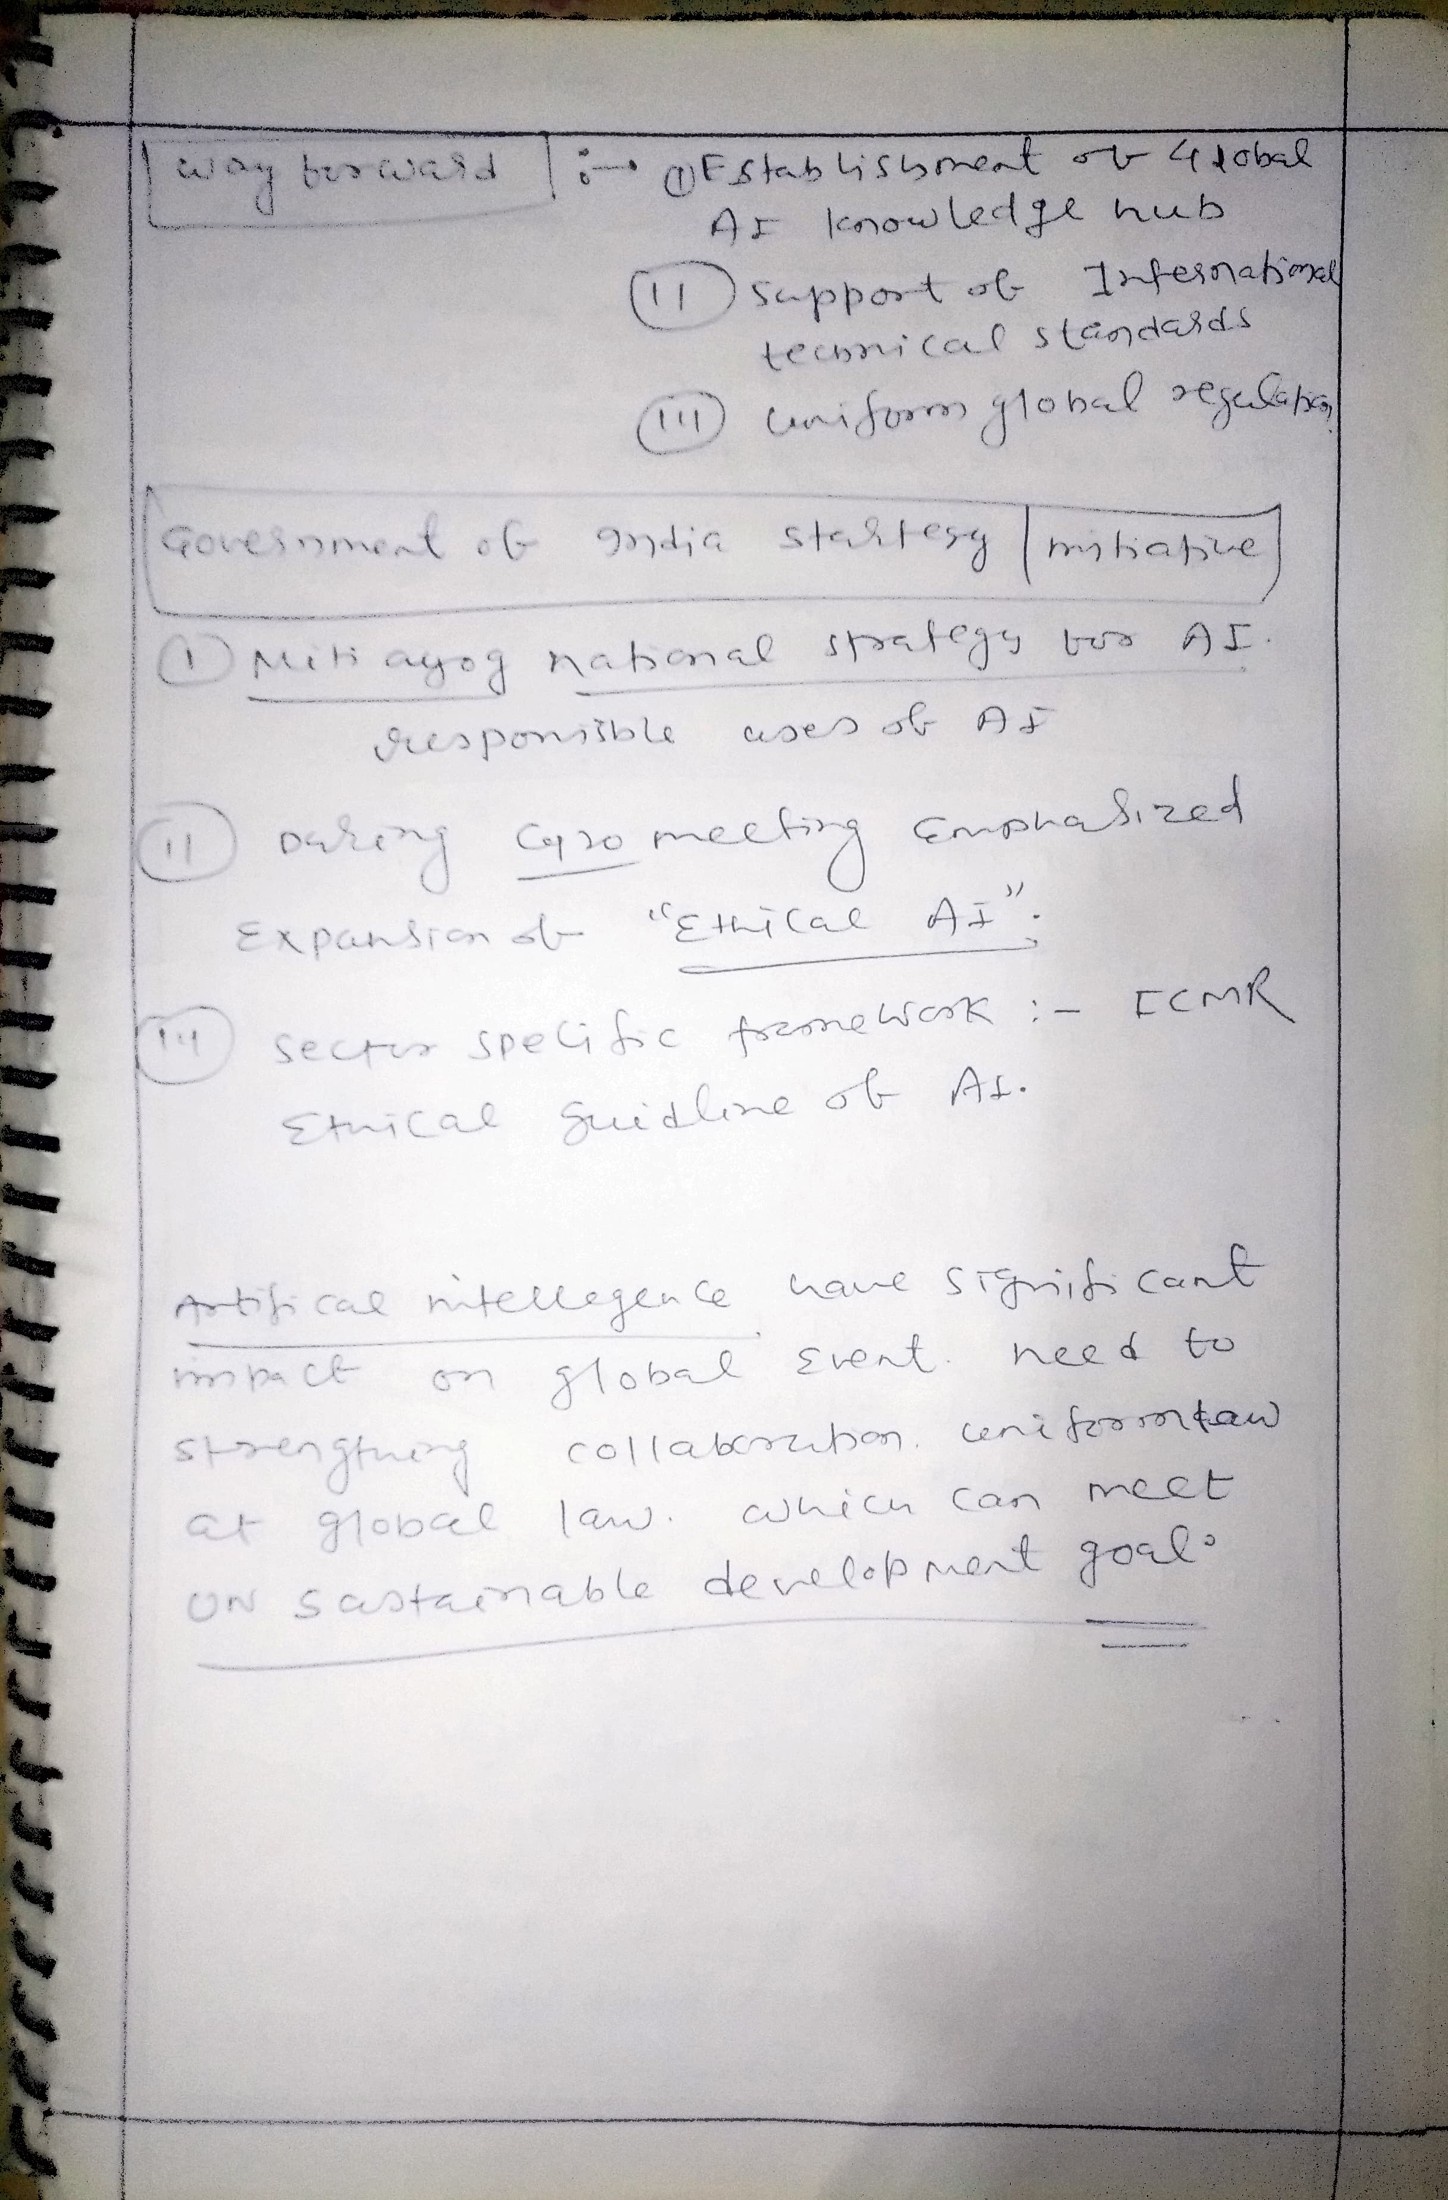 way forward :→ (I) Establishment of Global
AI knowledge hub
(II) support of International
technical standards
(III) uniform global regulation
Government of India startegy | initiative
(I) Niti ayog national strategy for AI.
responsible uses of AI
(II) During G20 meeting emphasized
Expansion of "Ethical AI".
(III) sector specific framework :- ICMR
Ethical guidline of AI.
Artifical intellegence have significant
impact on global event. need to
strengthing collaboration. uniform law
at global law. which can meet
UN sustainable development goal.